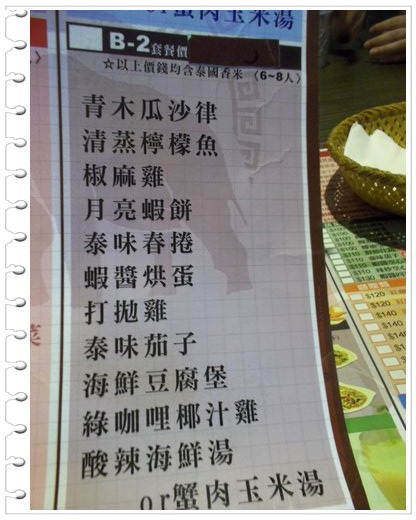 or蟹肉玉米湯
B-2套餐價
☆以上價錢均含泰國香米 〈6~8人〉
青木瓜沙律
清蒸檸檬魚
椒麻雞
月亮蝦餅
泰味春捲
蝦醬烘蛋
打拋雞
泰味茄子
海鮮豆腐堡
綠咖哩椰汁雞
酸辣海鮮湯
or蟹肉玉米湯
$120
$120
$140
$140